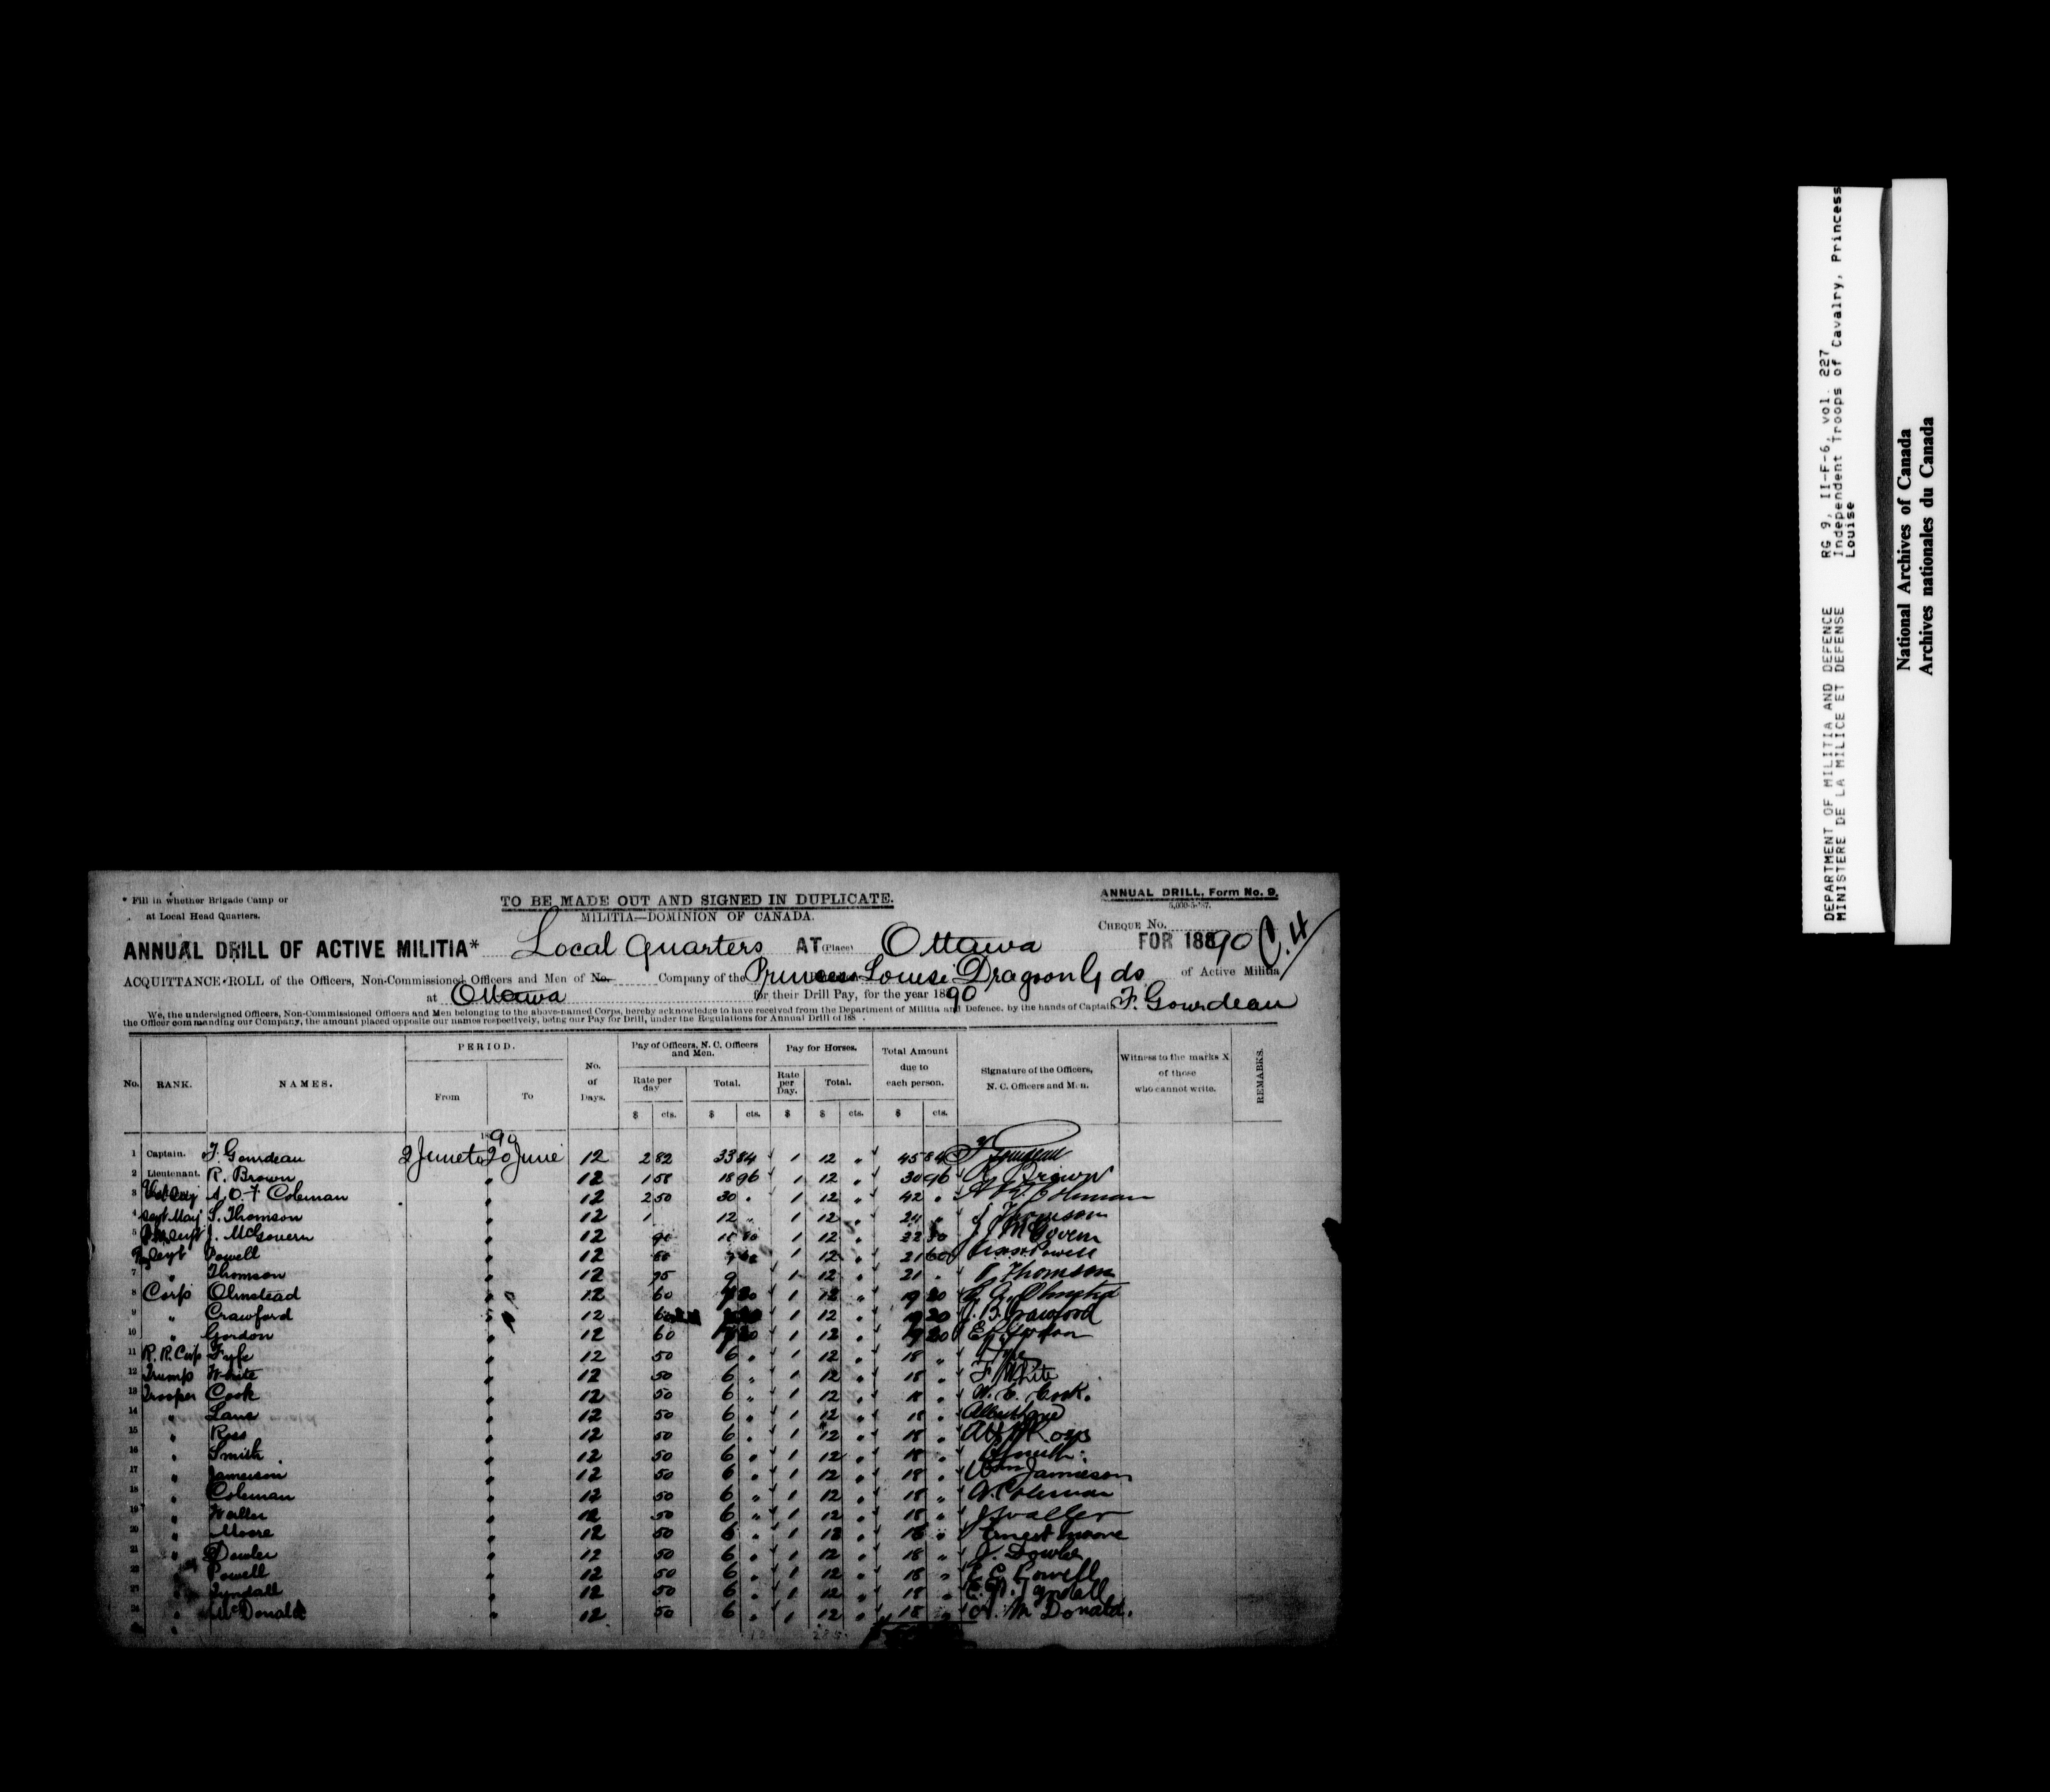 * Fill in whether Brigade Camp or
at Local Head Quarters.
TO BE MADE OUT AND SIGNED IN DUPLICATE.
MILITIA—DOMINION OF CANADA.
ANNUAL DRILL, Form No. 9.
CHEQUE No.
ANNUAL DRILL OF ACTIVE MILITIA* Local Quarters AT (Place) Ottawa FOR 1890 C.4
ACQUITTANCE-ROLL of the Officers, Non-Commissioned Officers and Men of No. Company of the Princess Louise Dragoon Gds of Active Militia
at Ottawa for their Drill Pay, for the year 1890
We, the undersigned Officers, Non-Commissioned Officers and Men belonging to the above-named Corps, hereby acknowledge to have received from the Department of Militia and Defence, by the hands of Captain F. Gourdeau
the Officer commanding our Company, the amount placed opposite our names respectively, being our Pay for Drill, under the Regulations for Annual Drill of 188 .
No. RANK. NAMES. PERIOD. From To No. of Days. Pay of Officers, N. C. Officers and Men. Rate per day $ cts. Total. $ cts. Pay for Horses. Rate per Day. $ Total. $ cts. Total Amount due to each person. $ cts. Signature of the Officers, N. C. Officers and Men. Witness to the marks X of those who cannot write. REMARKS.
1890
1 Captain. F. Gourdeau 9 June to 20 June 12 2 82 33 84 1 12 " 45 84 F Gourdeau
2 Lieutenant. R. Brown " 12 1 58 18 96 1 12 " 30 96 R Brown
3 A. O. F. Coleman " 12 2 50 30 " 1 12 " 42 " Coleman
4 Sergt Maj S. Thomson " 12 1 12 " 1 12 " 24 " S Thomson
5 J. McGovern " 12 90 10 80 1 12 " 22 80 J McGovern
6 Sergt Powell " 12 80 9 60 1 12 " 21 60 Powell
7 " Thomson " 12 75 9 1 12 " 21 " Thomson
8 Corp Olmstead " 12 60 7 20 1 12 " 19 20 Olmsted
9 " Crawford " 12 60 1 12 " 19 20 J. B. Crawford
10 " Gordon " 12 60 7 20 1 12 " 19 20 Gordon
11 Corp Fyfe " 12 50 6 " 1 12 " 18 " Fyfe
12 Trump White " 12 50 6 " 1 12 " 18 " F White
13 Trooper Cook " 12 50 6 " 1 12 " 18 " W. C. Cook.
14 " Lane " 12 50 6 " 1 12 " 18 " Albert Lane
15 " Ross " 12 50 6 " 1 12 " 18 " Ross
16 " Smith " 12 50 6 " 1 12 " 18 " Smith
17 " Jamieson " 12 50 6 " 1 12 " 18 " Wm Jamieson
18 " Coleman " 12 50 6 " 1 12 " 18 " Coleman
19 " Waller " 12 50 6 " 1 12 " 18 " J Waller
20 " Moore " 12 50 6 " 1 12 " 18 " Ernest Moore
21 " Dowler " 12 50 6 " 1 12 " 18 " J. Dowler
22 " Powell " 12 50 6 " 1 12 " 18 " C. E. Powell
23 " Tyndall " 12 50 6 " 1 12 " 18 " Tyndall
24 " McDonald " 12 50 6 " 1 12 " 18 " McDonald.
DEPARTMENT OF MILITIA AND DEFENCE
MINISTERE DE LA MILICE ET DEFENSE
RG 9, II-F-6, vol. 227
Independent Troops of Cavalry, Princess
Louise
National Archives of Canada
Archives nationales du Canada